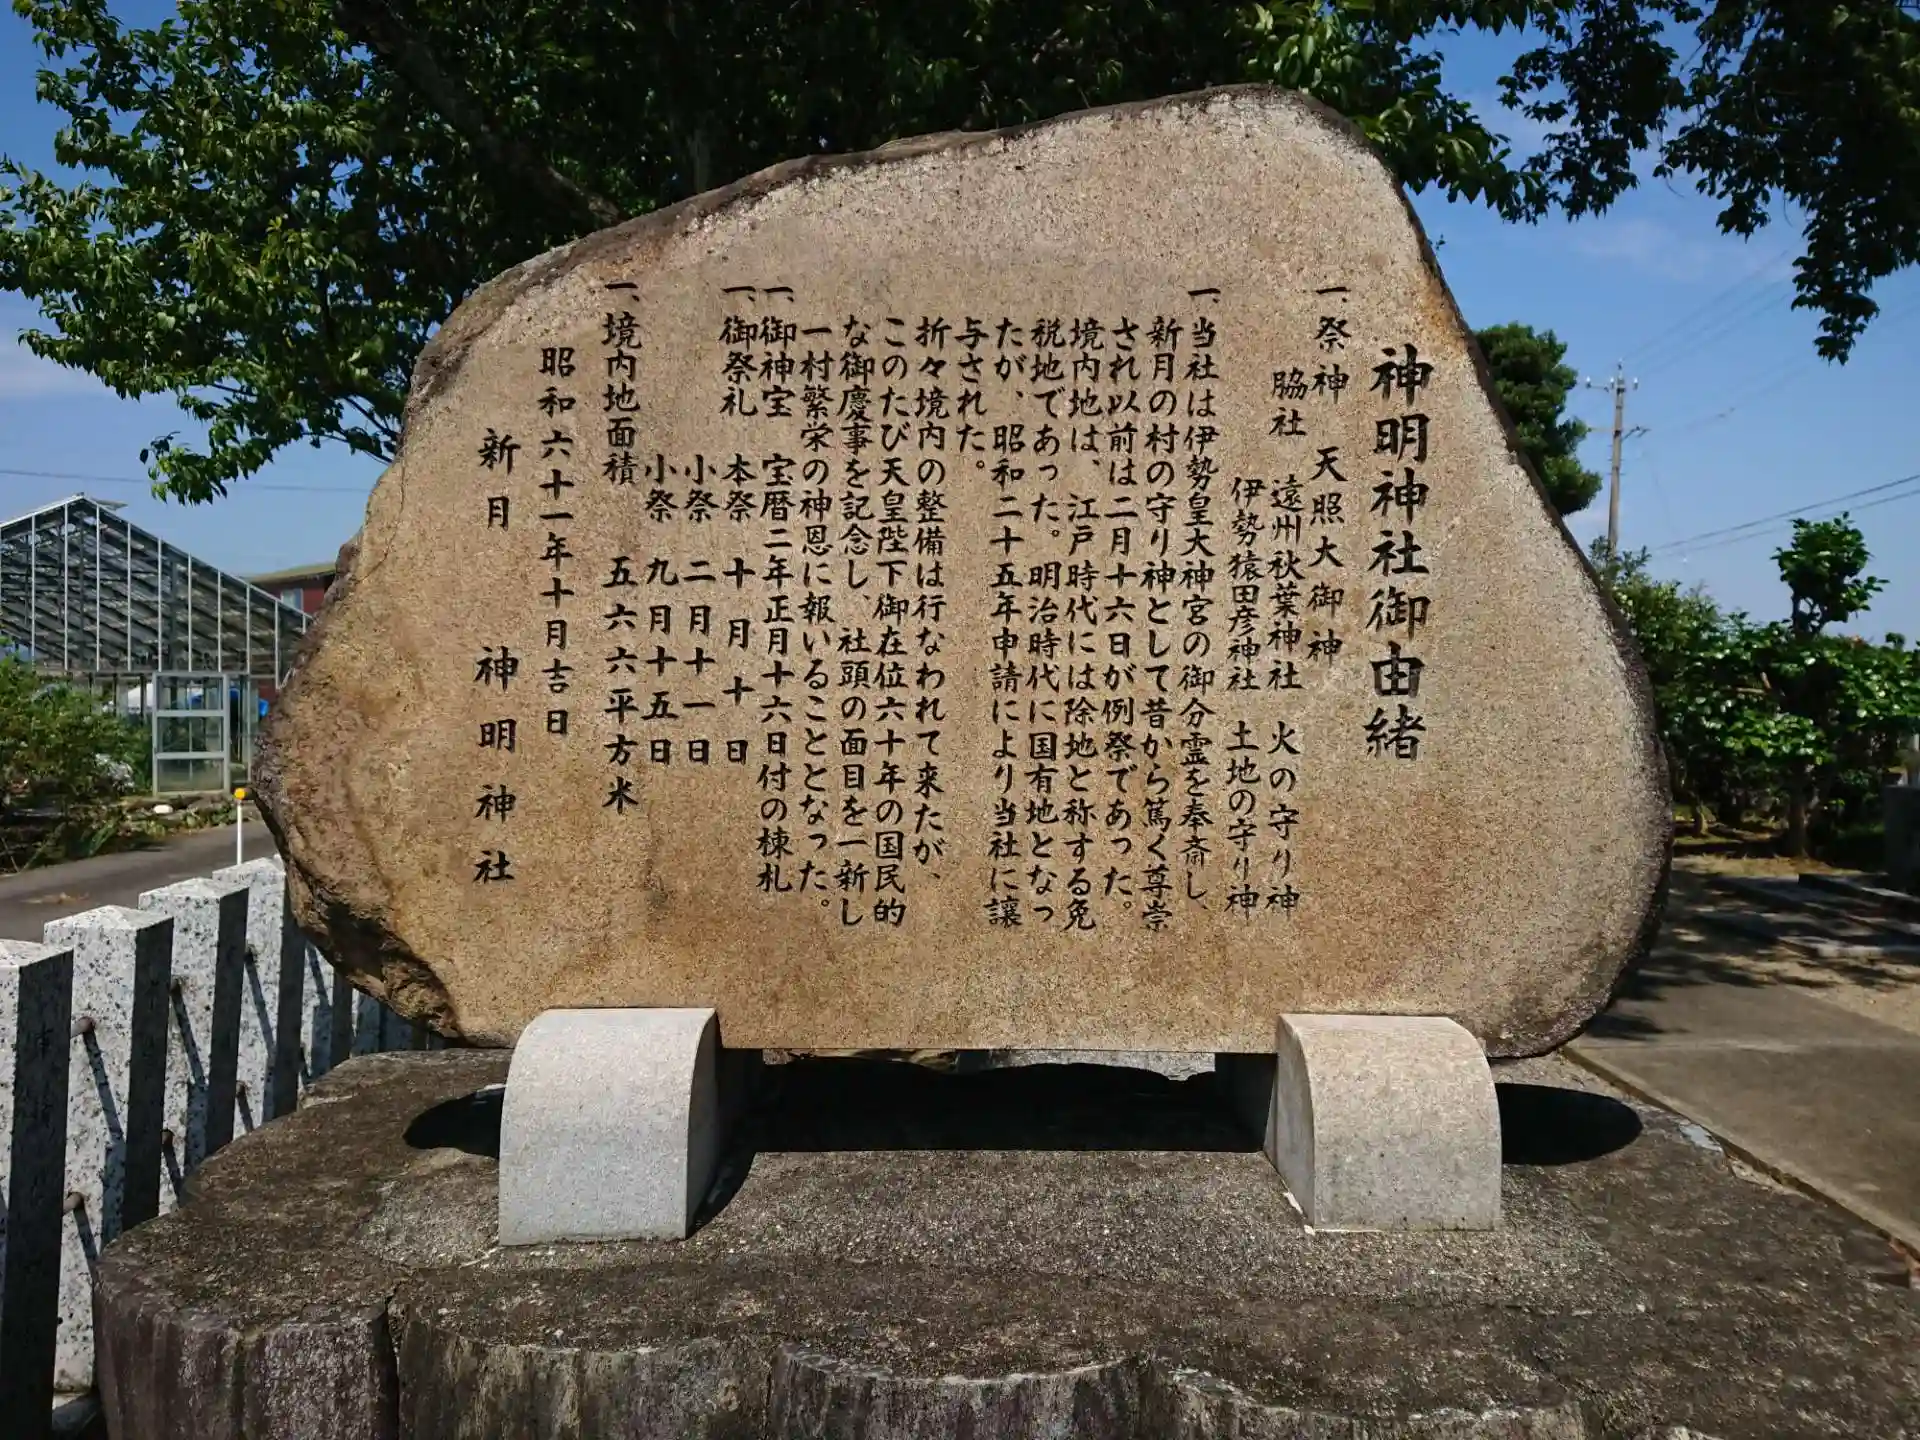 神明神社御由緒
一、祭神　天照大御神
脇社　遠州秋葉神社　火の守り神
伊勢猿田彦神社　土地の守り神
一、当社は伊勢皇大神宮の御分霊を奉斎し、
新月の村の守り神として昔から篤く尊崇
され以前は二月十六日が例祭であった。
境内地は、江戸時代には除地と称する免
税地であった。明治時代に国有地となっ
たが、昭和二十五年申請により当社に譲
与された。
折々境内の整備は行なわれて来たが、
このたび天皇陛下御在位六十年の国民的
な御慶事を記念し、社頭の面目を一新し
一村繁栄の神恩に報いることとなった。
一、御神宝　宝暦二年正月十六日付の棟札
一、御祭礼　本祭　十月十日
小祭　二月十一日
小祭　九月十五日
一、境内地面積　五六六平方米
昭和六十一年十月吉日
新月　神明神社